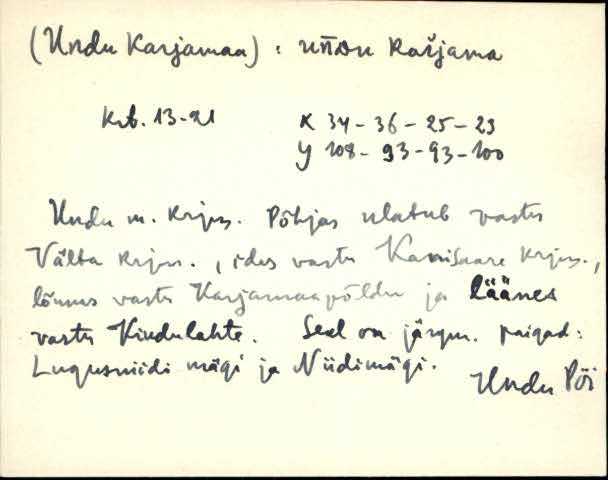 (Undu Karjamaa) : uñdu karjama
Krb. 13-21 X 34 - 36 - 25 - 23
Y 108 - 93 - 93 - 100
Undu m. krjm. Põhjas ulatub vastu
Välta krjm., ides vastu Kamisaare krjm.,
lõunas vastu Karjamaapõldu ja läänes
vastu Kindulahte. Seal on järgm. paigad:
Lugusniidi mägi ja Niidimägi.
Undu Pöi